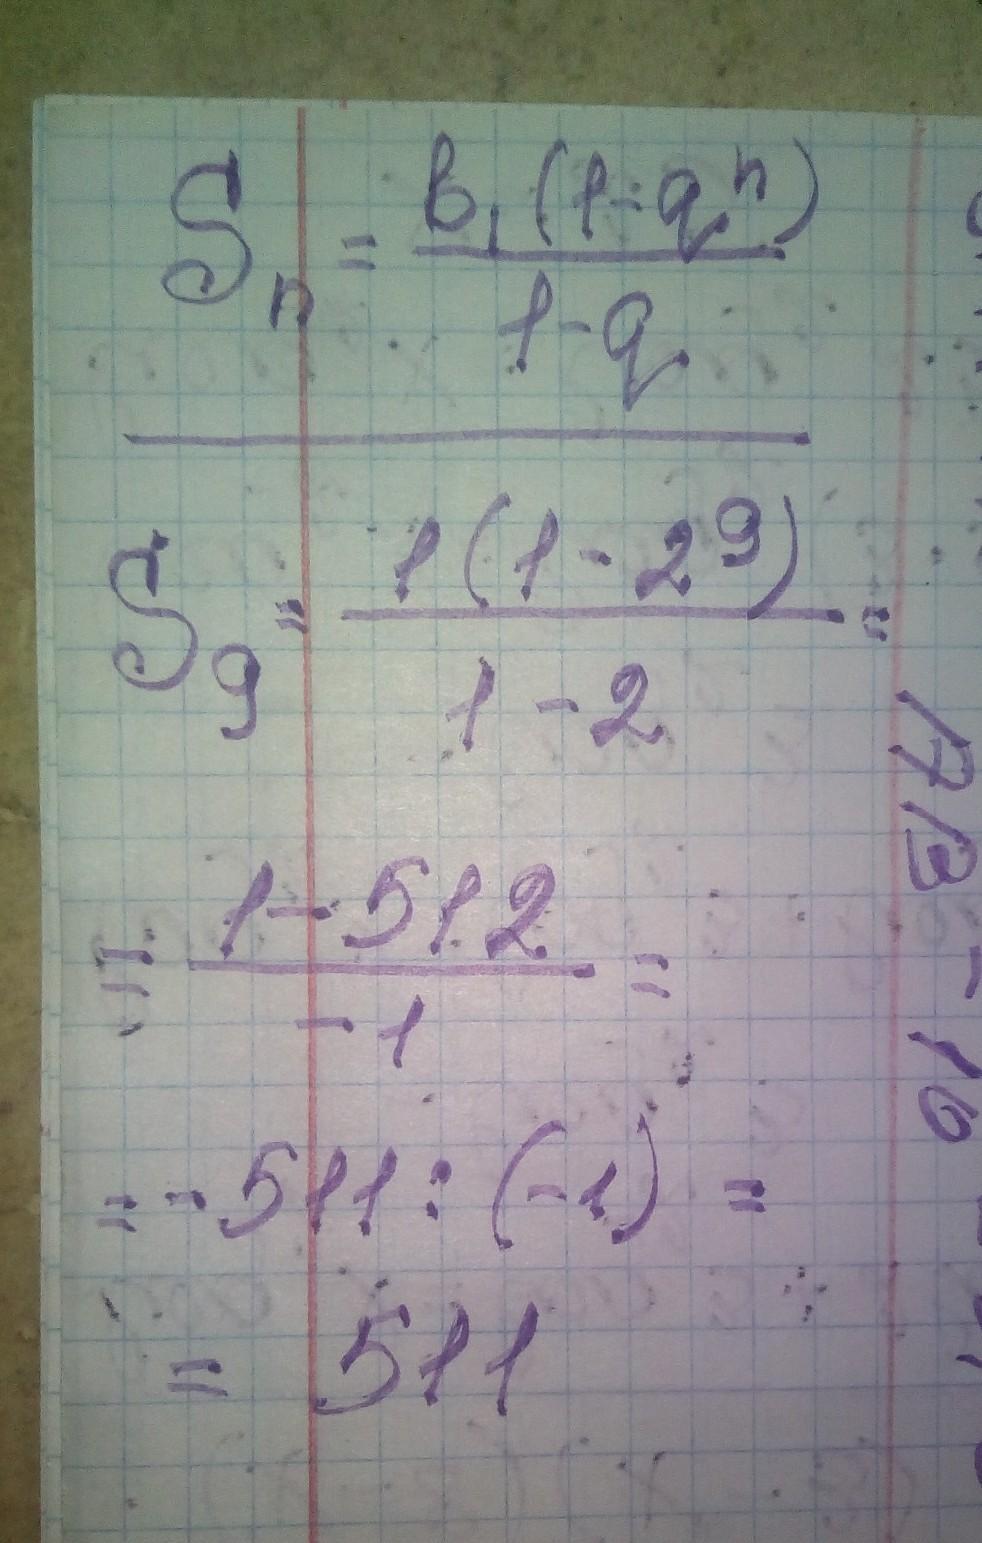 Sₙ = b₁(1-qⁿ) / 1-q
S₉ = 1(1-2⁹) / 1-2 =
= 1-512 / -1 =
= -511 : (-1) =
= 511